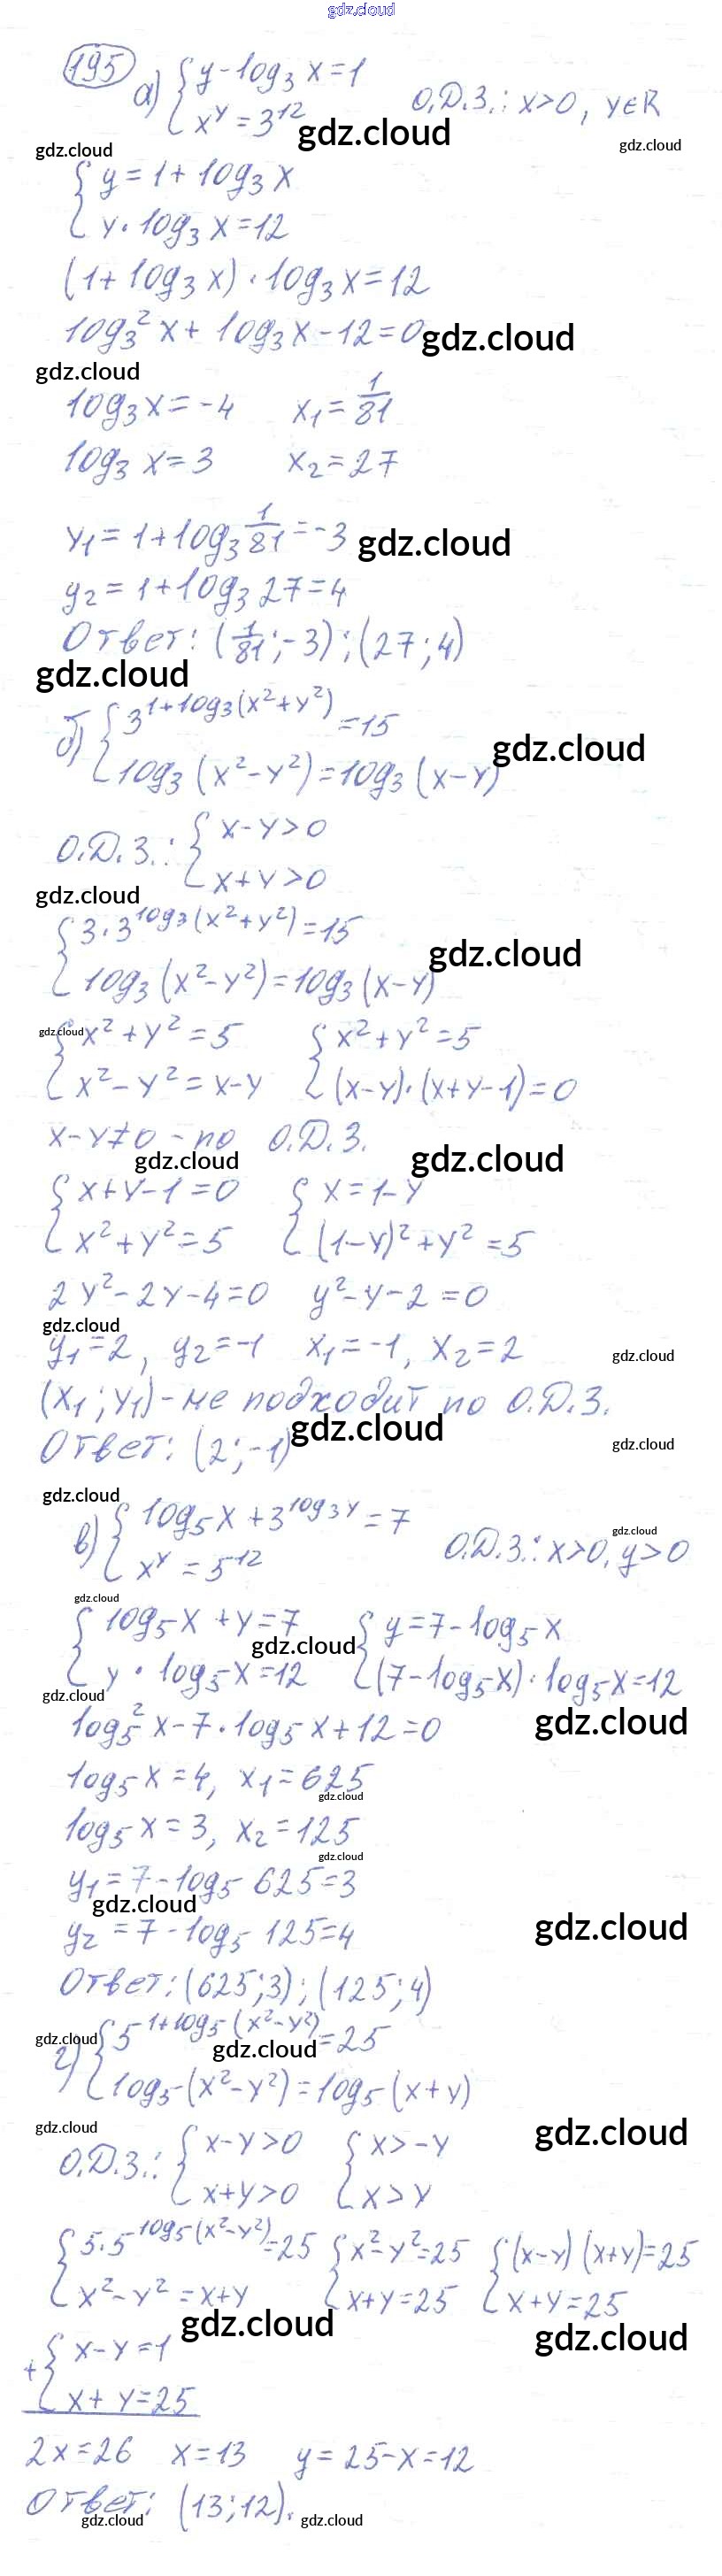 gdz.cloud
195
а) { y - log₃ x = 1
x^y = 3^12 О.Д.З.: x>0, y∈R
gdz.cloud
gdz.cloud gdz.cloud
{ y = 1 + log₃ x
y · log₃ x = 12
(1 + log₃ x) · log₃ x = 12
log₃² x + log₃ x - 12 = 0
gdz.cloud
gdz.cloud
log₃ x = -4 x₁ = 1/81
log₃ x = 3 x₂ = 27
y₁ = 1 + log₃ 1/81 = -3
gdz.cloud
y₂ = 1 + log₃ 27 = 4
Ответ: (1/81; -3); (27; 4)
gdz.cloud
б) { 3^(1+log₃(x²+y²)) = 15
log₃ (x²-y²) = log₃ (x-y)
gdz.cloud
О.Д.З.: { x-y>0
x+y>0
gdz.cloud
{ 3·3^(log₃(x²+y²)) = 15
log₃ (x²-y²) = log₃ (x-y)
gdz.cloud
gdz.cloud
{ x²+y² = 5 { x²+y² = 5
x²-y² = x-y (x-y)·(x+y-1) = 0
x-y≠0 - по О.Д.З.
gdz.cloud gdz.cloud
{ x+y-1=0 { x = 1-y
x²+y² = 5 (1-y)²+y² = 5
2y²-2y-4=0 y²-y-2=0
gdz.cloud
y₁=2, y₂=-1 x₁=-1, x₂=2
gdz.cloud
(x₁; y₁) - не подходит по О.Д.З.
gdz.cloud
Ответ: (2; -1)
gdz.cloud
gdz.cloud
в) { log₅ x + 3^(log₃ y) = 7
x^y = 5^12 О.Д.З.: x>0, y>0
gdz.cloud
gdz.cloud
{ log₅ x + y = 7 { y = 7 - log₅ x
gdz.cloud
y · log₅ x = 12 (7 - log₅ x) · log₅ x = 12
gdz.cloud
log₅² x - 7·log₅ x + 12 = 0
gdz.cloud
log₅ x = 4, x₁ = 625
gdz.cloud
log₅ x = 3, x₂ = 125
gdz.cloud
y₁ = 7 - log₅ 625 = 3
gdz.cloud
y₂ = 7 - log₅ 125 = 4
gdz.cloud
Ответ: (625; 3); (125; 4)
г) { 5^(1+log₅(x²-y²)) = 25
gdz.cloud
gdz.cloud
log₅ (x²-y²) = log₅ (x+y)
gdz.cloud
gdz.cloud
О.Д.З.: { x-y>0 { x>-y
x+y>0 x>y
{ 5·5^(log₅(x²-y²)) = 25 { x²-y²=25 { (x-y)(x+y)=25
x²-y² = x+y x+y=25 x+y=25
gdz.cloud
gdz.cloud
+ { x-y=1
x+y=25
2x=26 x=13 y=25-x=12
Ответ: (13; 12).
gdz.cloud gdz.cloud